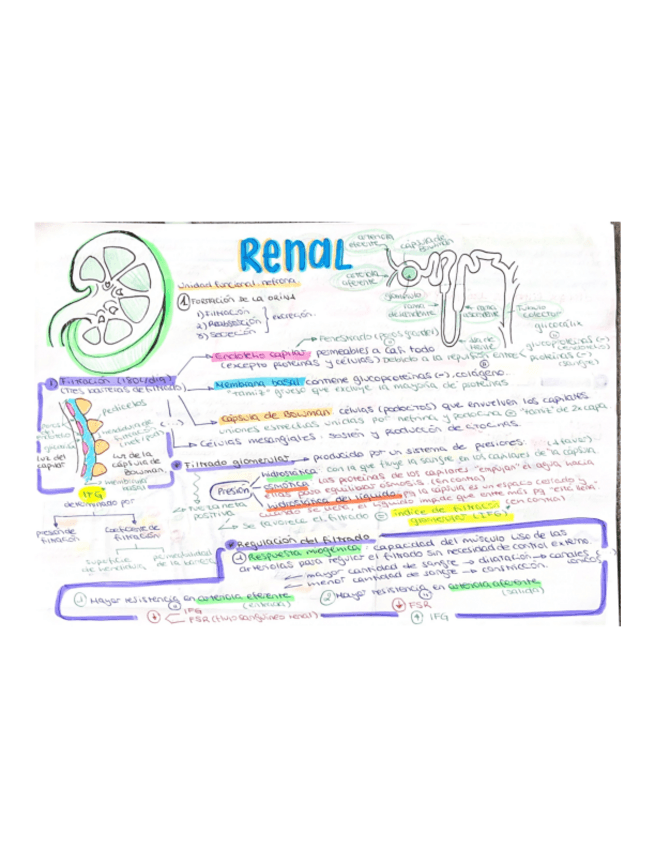 Renal
arteriola
eferente
cápsula de
Bowman
arteriola
aferente
glomérulo
rama
descendente
rama
ascendente
Túbulo
colector
asa de
Henle
Unidad funcional: nefrona
1 Formación de la orina
1) Filtración
2) Reabsorción
3) Secreción
excreción.
Fenestrado (poros grandes)
glicocálix
glucoproteínas (-)
(endotelio)
proteínas (-)
(sangre).
Endotelio capilar permeables a casi todo
(excepto proteínas y células) Debido a la repulsión entre
1 Filtración (180L/día)
(Tres barreras de filtrado)
Membrana basal contiene glucoproteínas (-), colágeno.
"tamiz" grueso que excluye la mayoría de proteínas
Cápsula de Bowman células (podocitos) que envuelven los capilares
uniones estrechas unidas por nefrina y podocina "tamiz" de 2ª capa.
Células mesangiales: sostén y producción de citocinas.
Pedicelos
hendidura de
filtración
(nefrina)
luz del
capilar
luz de la
cápsula de
Bowman
membrana
basal
* Filtrado glomerular → producido por un sistema de presiones:
(a favor)
Presión
hidrostática: con la que fluye la sangre en los capilares de la cápsula
osmótica las proteínas de los capilares "empujan" el agua hacia
ellas para equilibrar osmosis (En contra)
hidrostática del líquido: pq la cápsula es un espacio cerrado y
cuando se llena, el líquido impide que entre más pq "está llena".
(en contra)
neta
positiva
→ Se favorece el filtrado = índice de filtrado
glomerular (IFG)
IFG
determinado por
presión de
filtración
Coeficiente de
filtración
superficie
de hendidura
permeabilidad
de la barrera
* Regulación del filtrado
1 Respuesta miogénica: capacidad del músculo liso de las
arteriolas para regular el filtrado sin necesidad de control externo.
mayor cantidad de sangre → dilatación → canales
iónicos
menor cantidad de sangre → constricción.
1 Mayor resistencia en arteriola eferente
(entrada)
IFG
FSR (flujo sanguíneo renal)
2 Mayor resistencia en arteriola aferente
(salida)
FSR
IFG